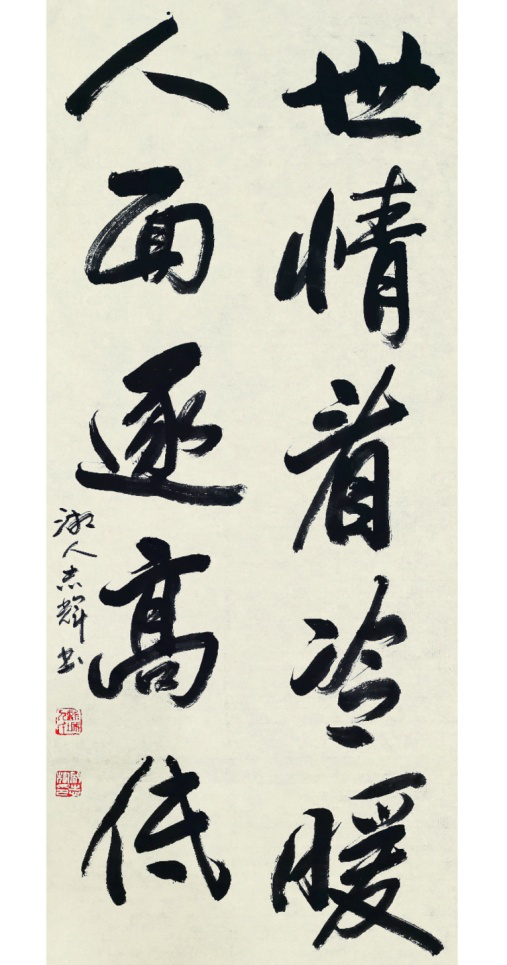 世情看冷暖
人面逐高低
湘人志輝书